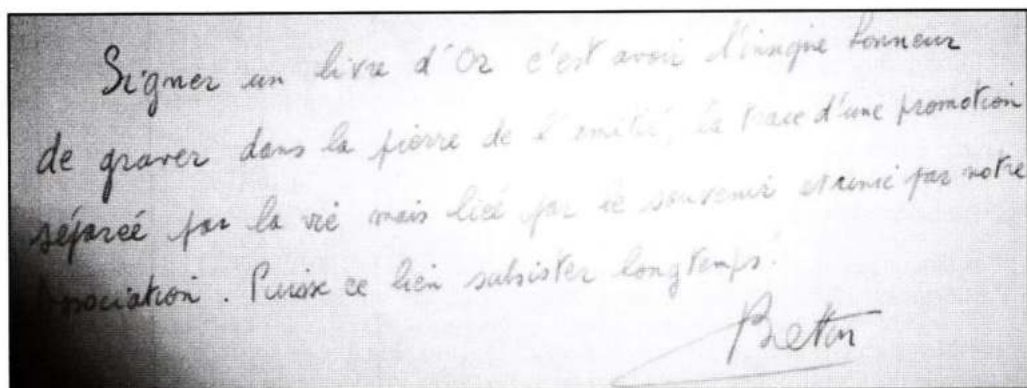 Signer un livre d'Or c'est avoir l'insigne honneur
de graver dans la pierre de l'amitié, la trace d'une promotion
séparée par la vie mais liée par le souvenir et unie par notre
Association. Puisse ce lien subsister longtemps!